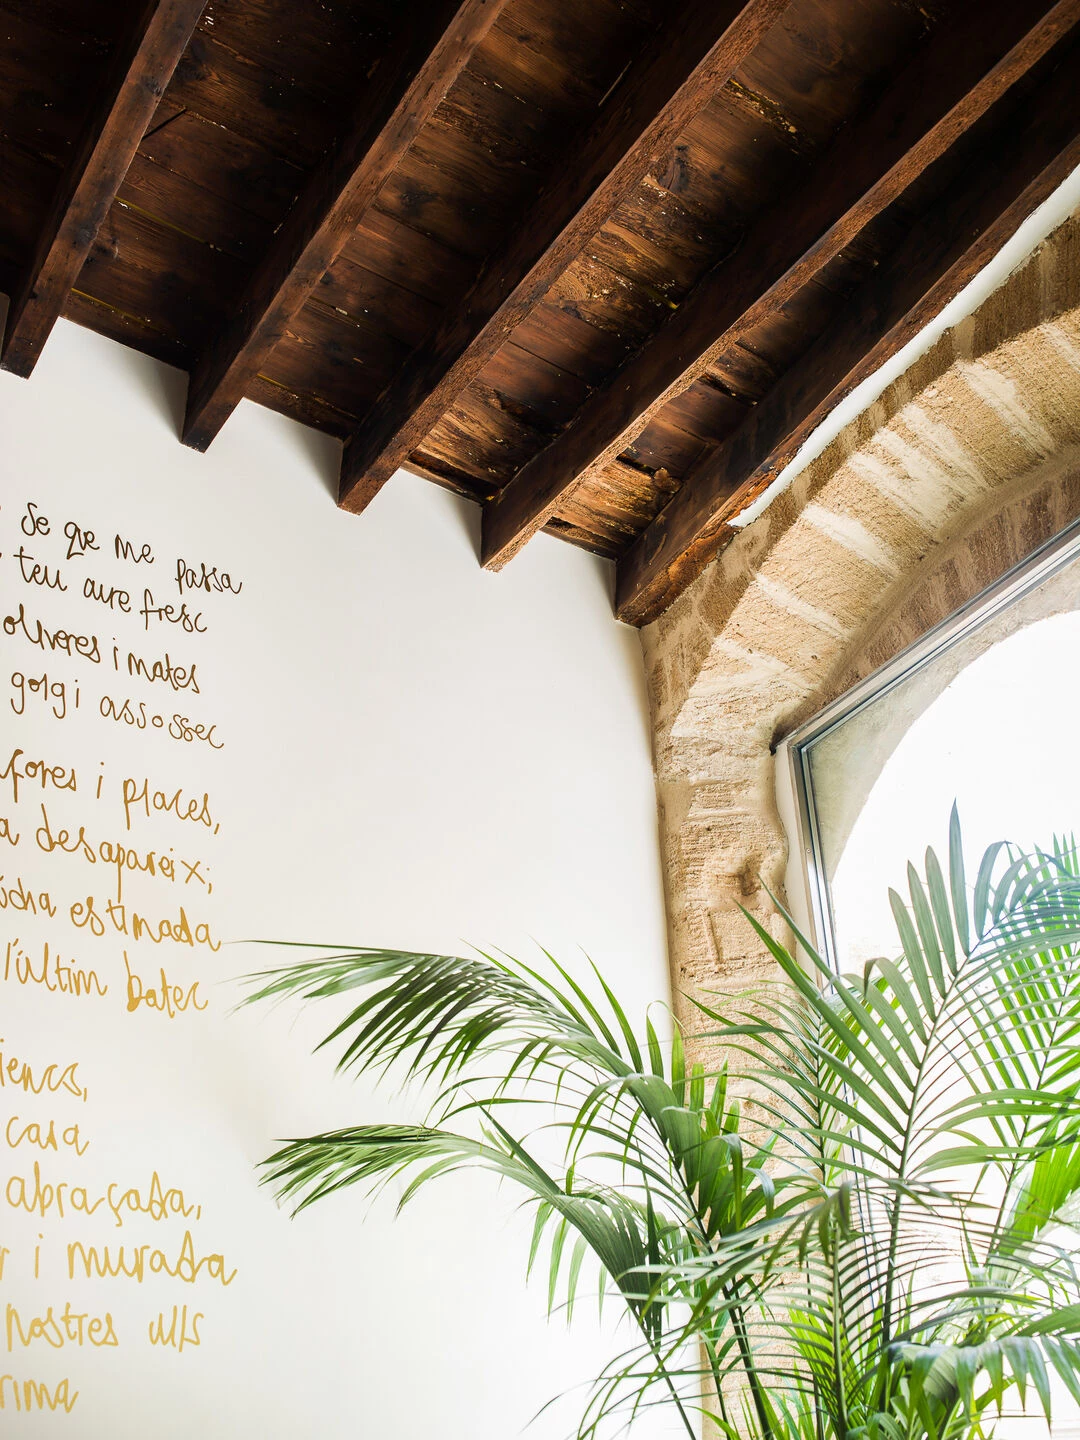 se que me passa
teu aire fresc
oliveres i mates
gorg i assossec
fores i places,
a desapareix;
estimada
l'últim batec
iencs,
casa
abraçada,
r i murada
nostres ulls
rima